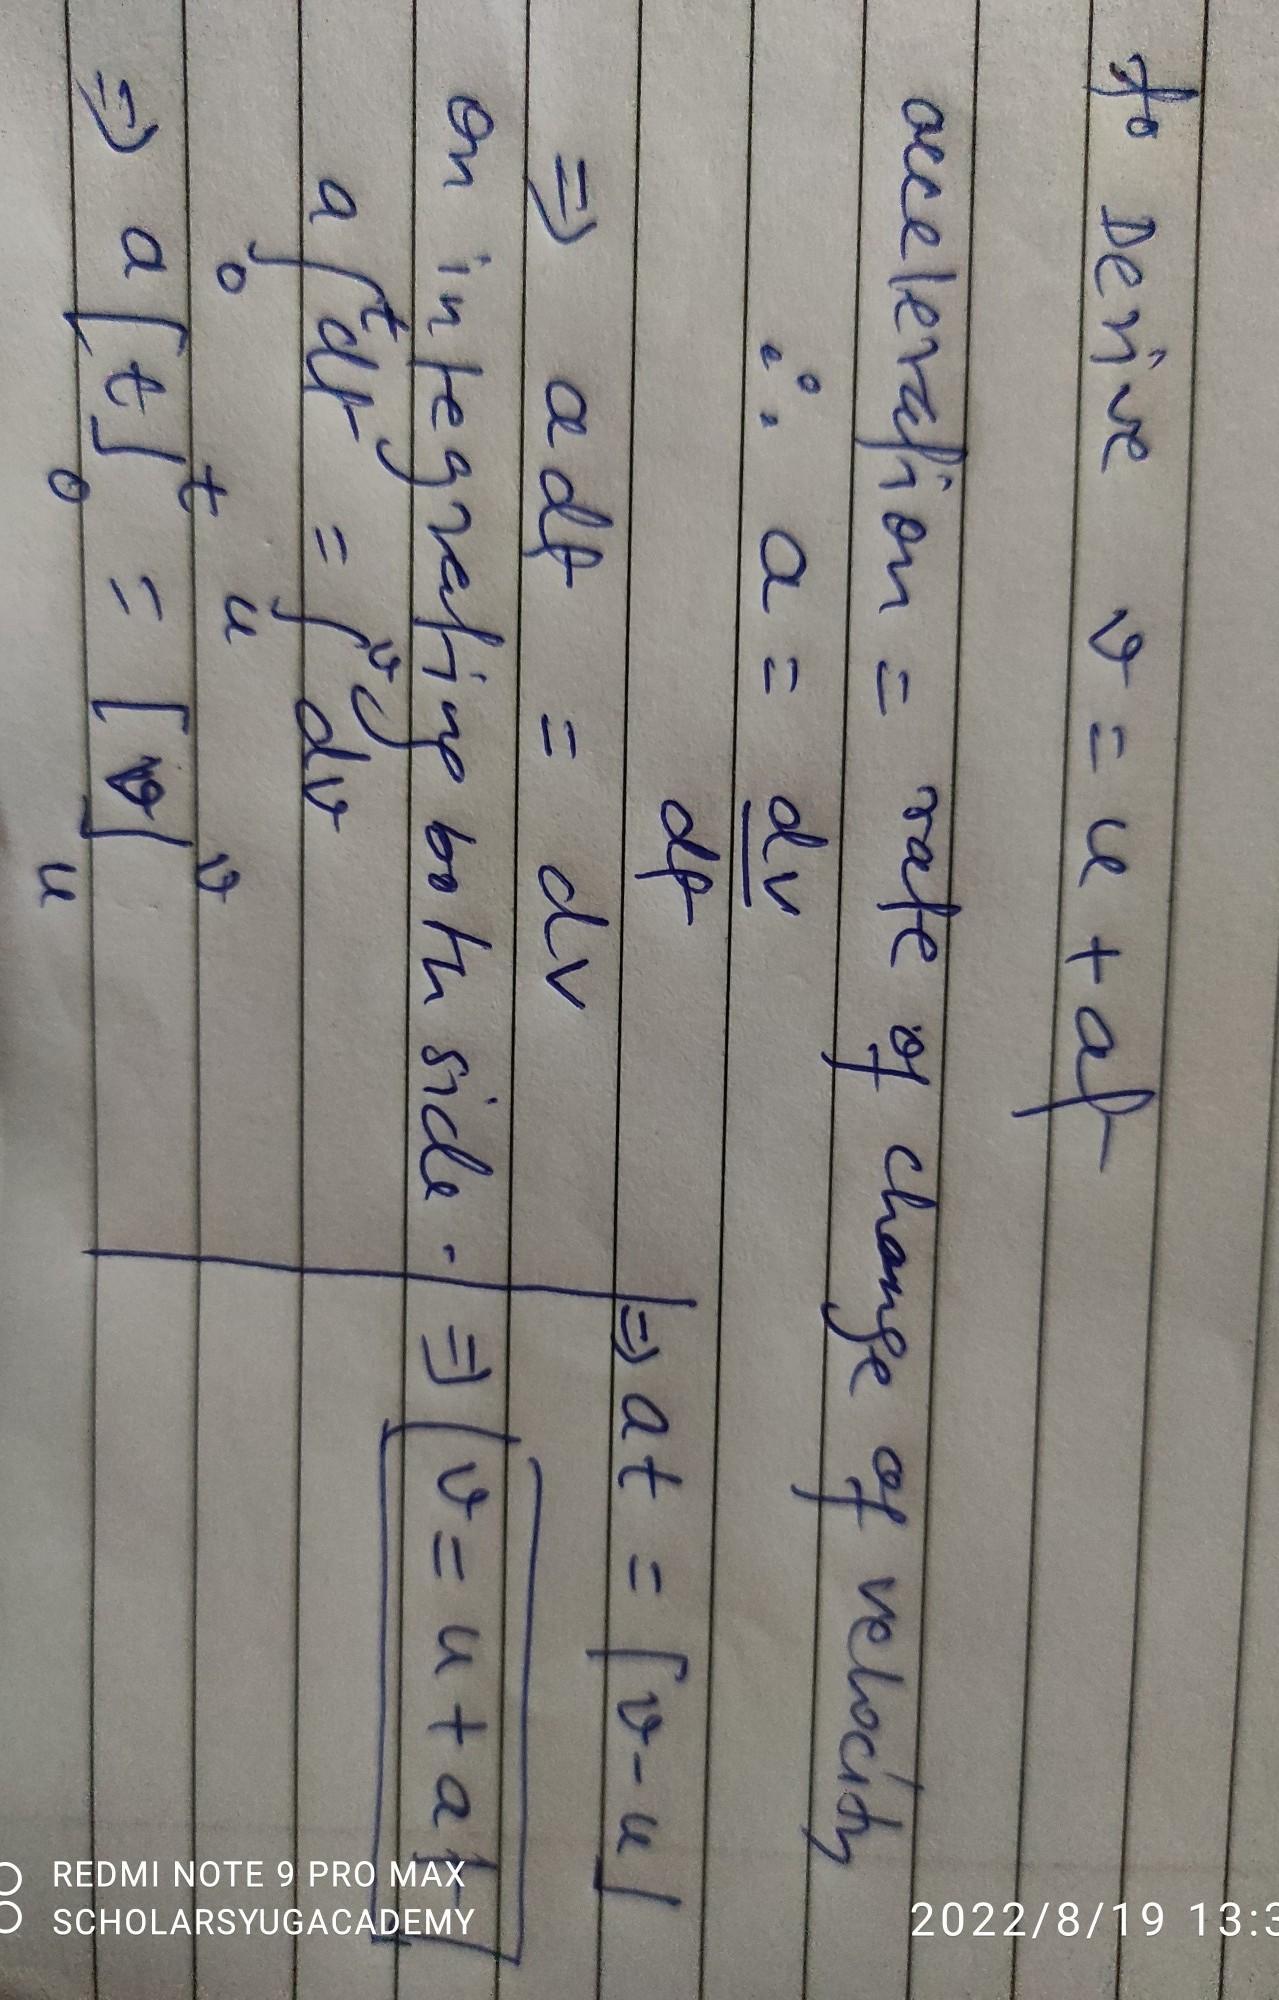 To Derive v = u + at
acceleration = rate of change of velocity
∴ a = dv
dt
⇒ adt = dv
on integrating both side.
a∫₀ᵗ dt = ∫ᵤᵛ dv
⇒ a[t]₀ᵗ = [v]ᵤᵛ
⇒ at = [v-u]
⇒ [v = u + at]
REDMI NOTE 9 PRO MAX
SCHOLARSYUGACADEMY
2022/8/19 13:3